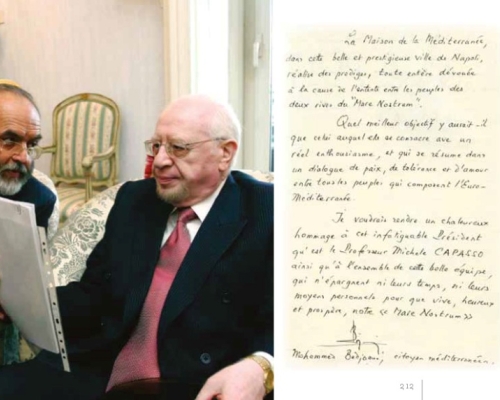 La Maison de la Méditerranée,
dans cette belle et prestigieuse ville de Napoli,
réalise des prodiges, toute entière dévouée
à la cause de l'entente entre les peuples des
deux rives du "Mare Nostrum".
Quel meilleur objectif y aurait-il
que celui auquel elle se consacre avec un
réel enthousiasme, et qui se résume dans
un dialogue de paix, de tolérance et d'amour
entre tous les peuples qui composent l'Euro-
Méditerranée.
Je voudrais rendre un chaleureux
hommage à cet infatigable Président
qu'est le Professeur Michele CAPASSO
ainsi qu'à l'ensemble de cette belle équipe,
qui n'épargnent ni leurs temps, ni leurs
moyens personnels pour que vive, heureux
et prospère, notre « Mare Nostrum »
Mohammed Bedjaoui, citoyen méditerranéen.
212